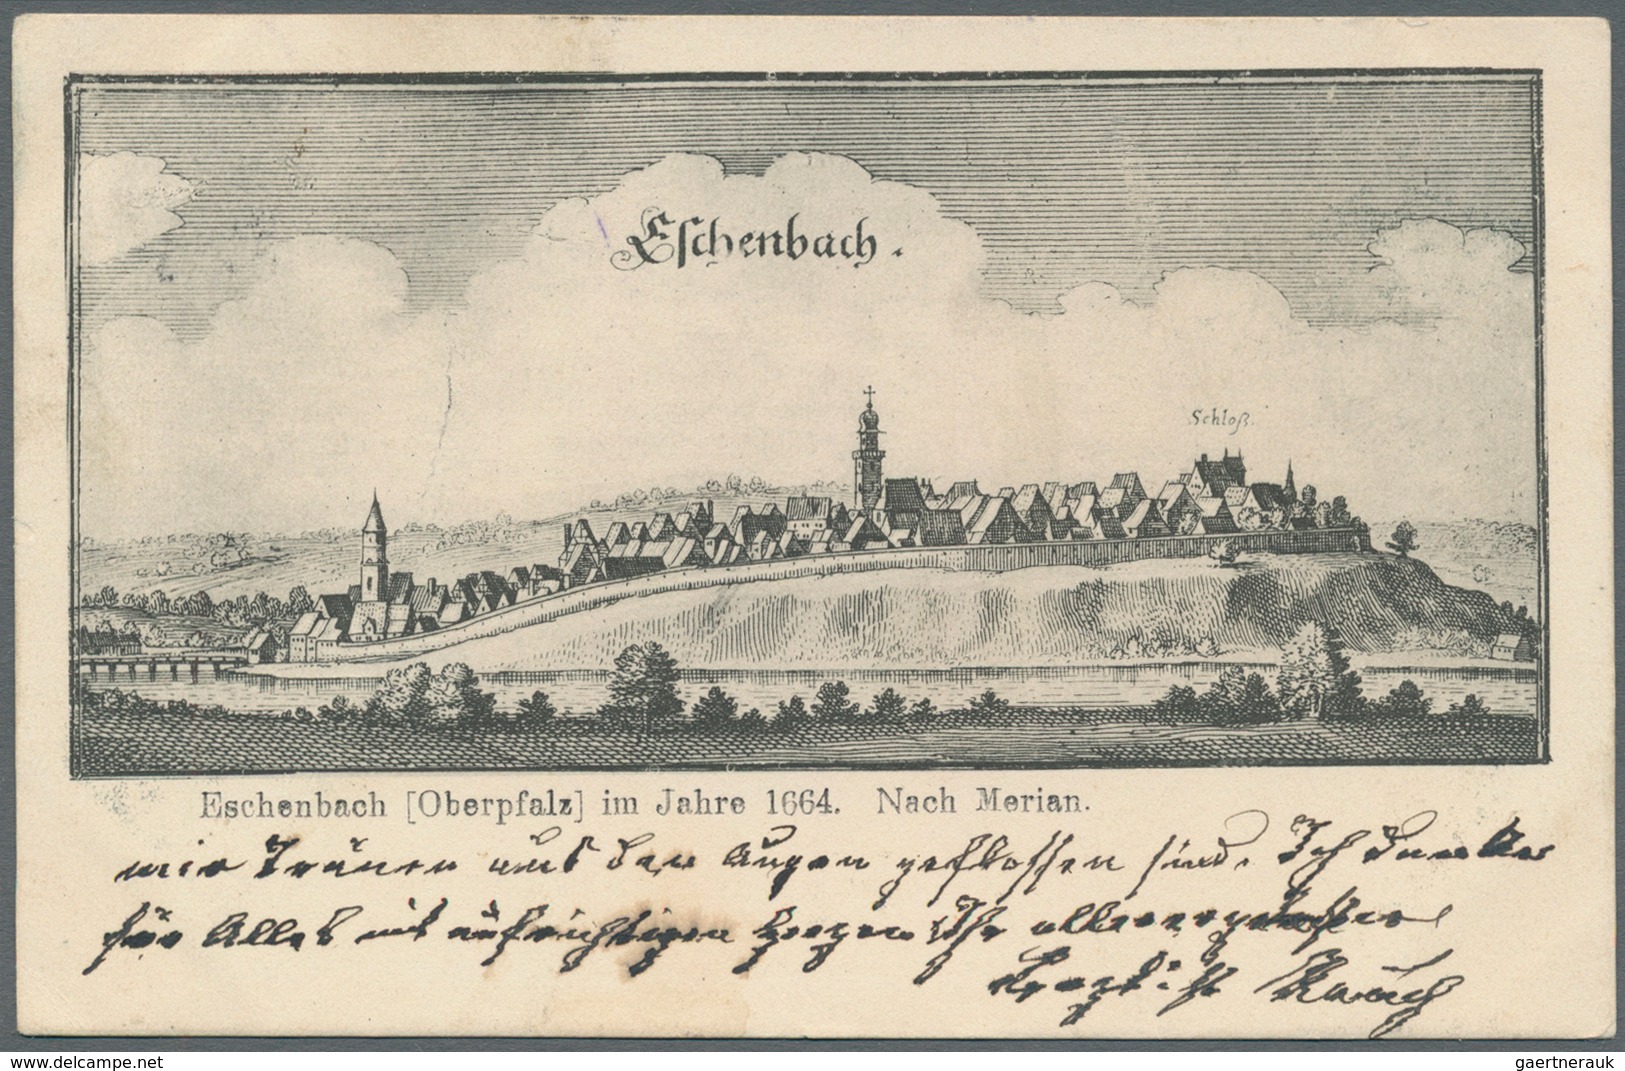 Eschenbach.
Schloß.
Eschenbach [Oberpfalz] im Jahre 1664. Nach Merian.
mir Tränen aus den Augen geflossen sind. Ich danke
für Alles mit aufrichtigen Ihr
Rauch
www.delcampe.net
gaertnerauk